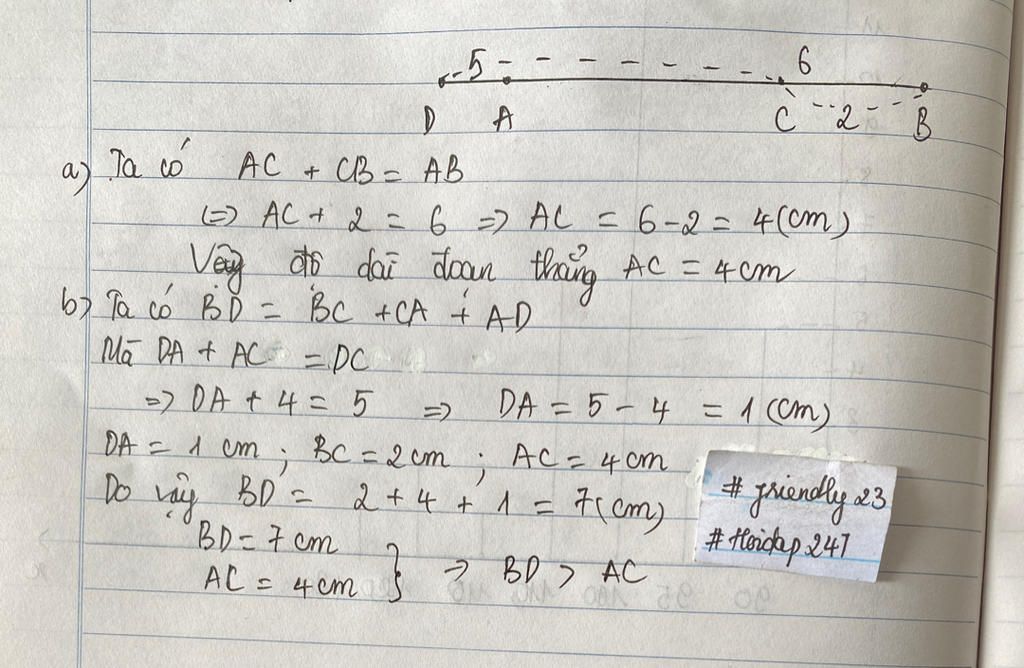 5 6
D A C 2 B
a) Ta có AC + CB = AB
(=) AC + 2 = 6 => AC = 6 - 2 = 4 (cm)
Vậy độ dài đoan thẳng AC = 4cm
b) Ta có BD = BC + CA + AD
Mà DA + AC = DC
=> DA + 4 = 5 => DA = 5 - 4 = 1 (cm)
DA = 1 cm ; BC = 2 cm ; AC = 4 cm
Do vậy BD = 2 + 4 + 1 = 7 (cm)
BD = 7 cm
AC = 4 cm } => BD > AC
# friendly 23
# Hoidap 247